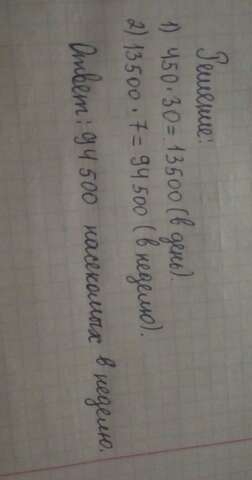 Решение:
1) 450·30=13500 (в день)
2) 13500·7=94500 (в неделю).
Ответ: 94500 насекомых в неделю.